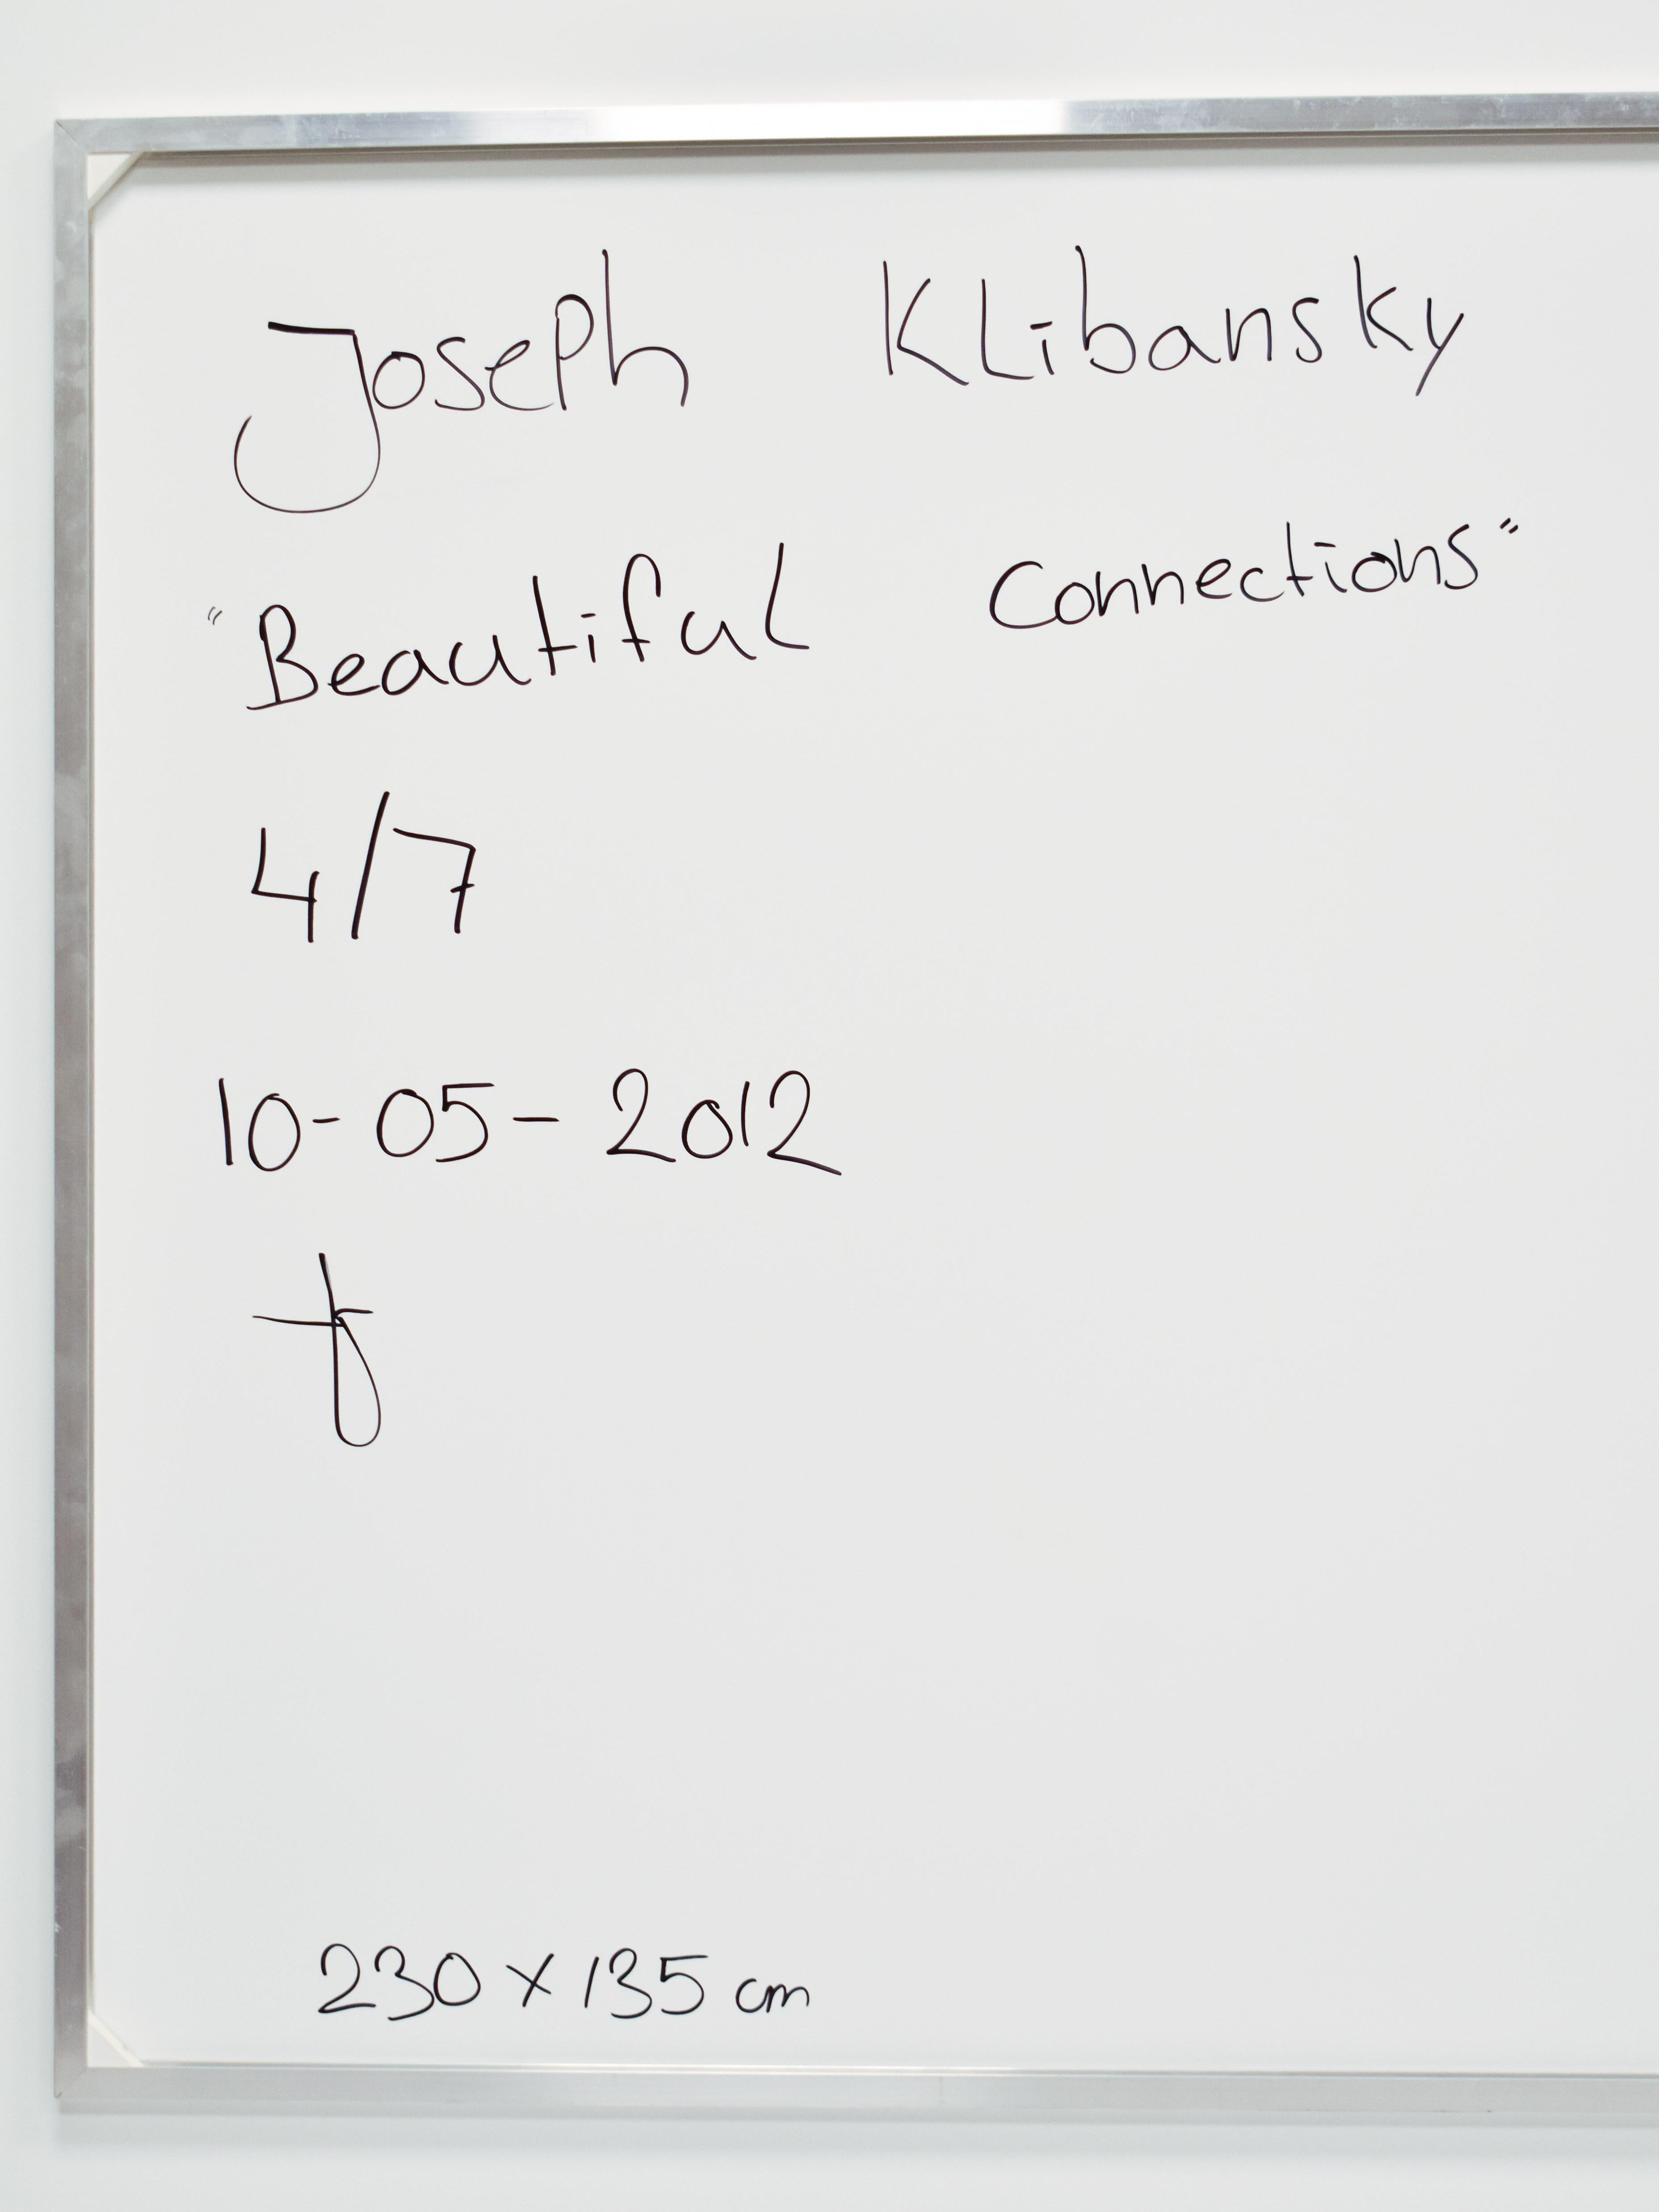 Joseph Klibansky
"Beautiful Connections"
4/7
10-05-2012
230 x 135 cm